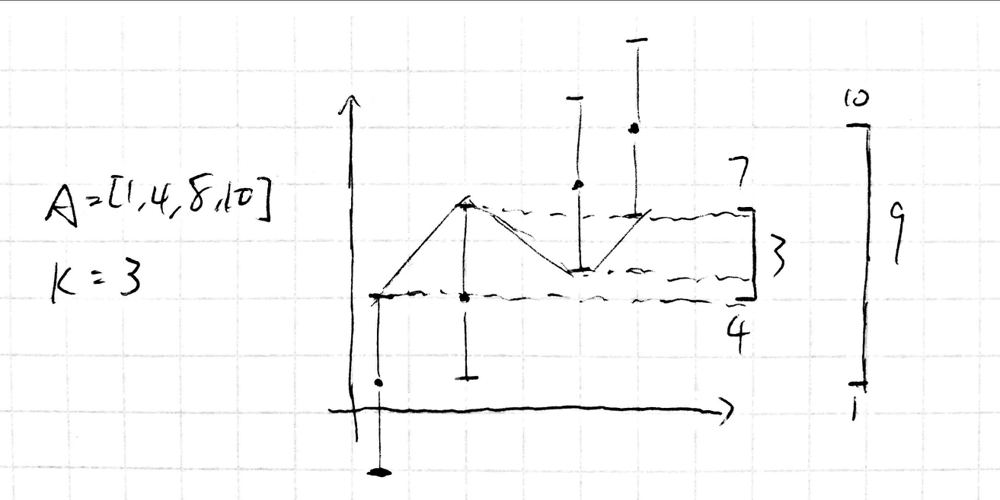 A=[1,4,8,10]
K=3
7
3
4
10
9
1